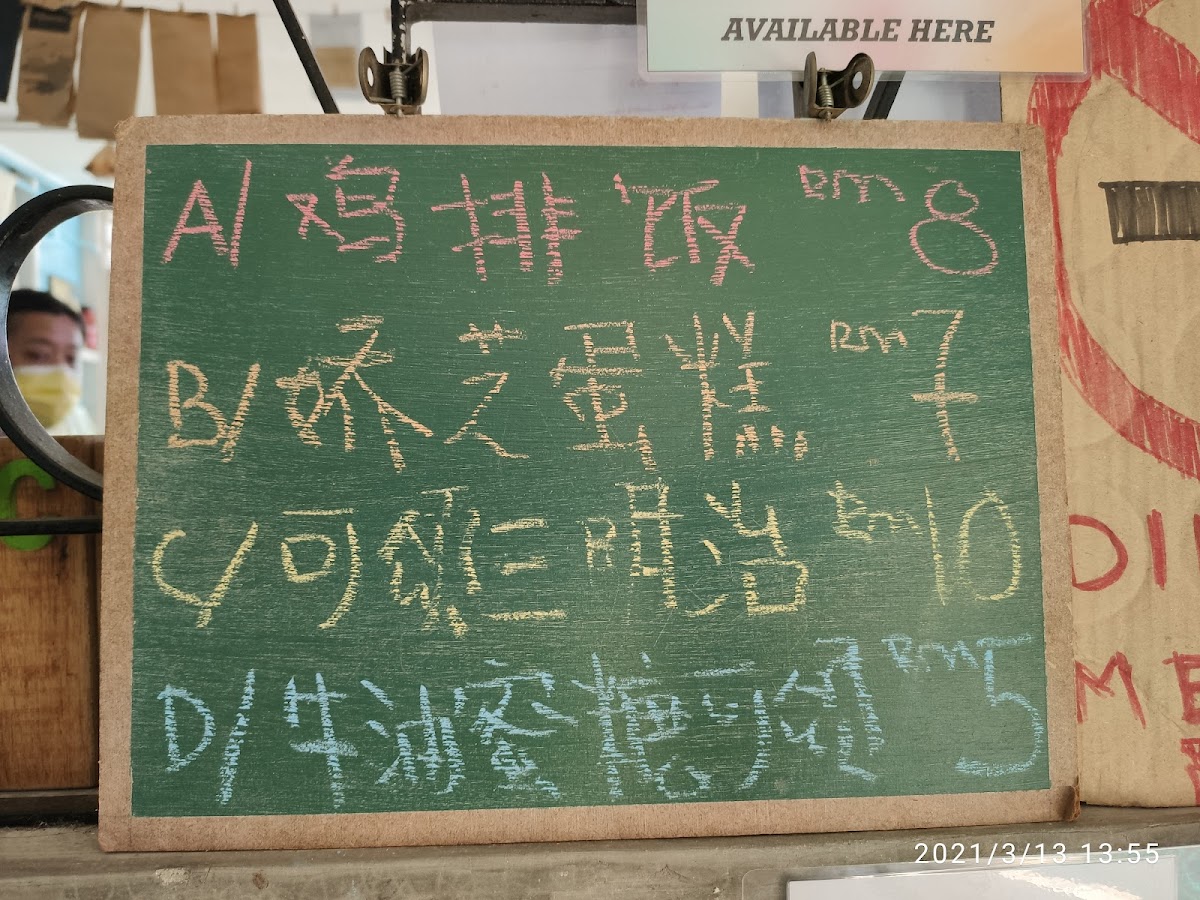 AVAILABLE HERE
A/ 鸡排饭 RM 8
B/ 娇芝蛋糕 RM 7
C/ 可颂三明治 RM 10
D/ 牛油蜜糖可颂 RM 5
DI
ME
2021/3/13 13:55